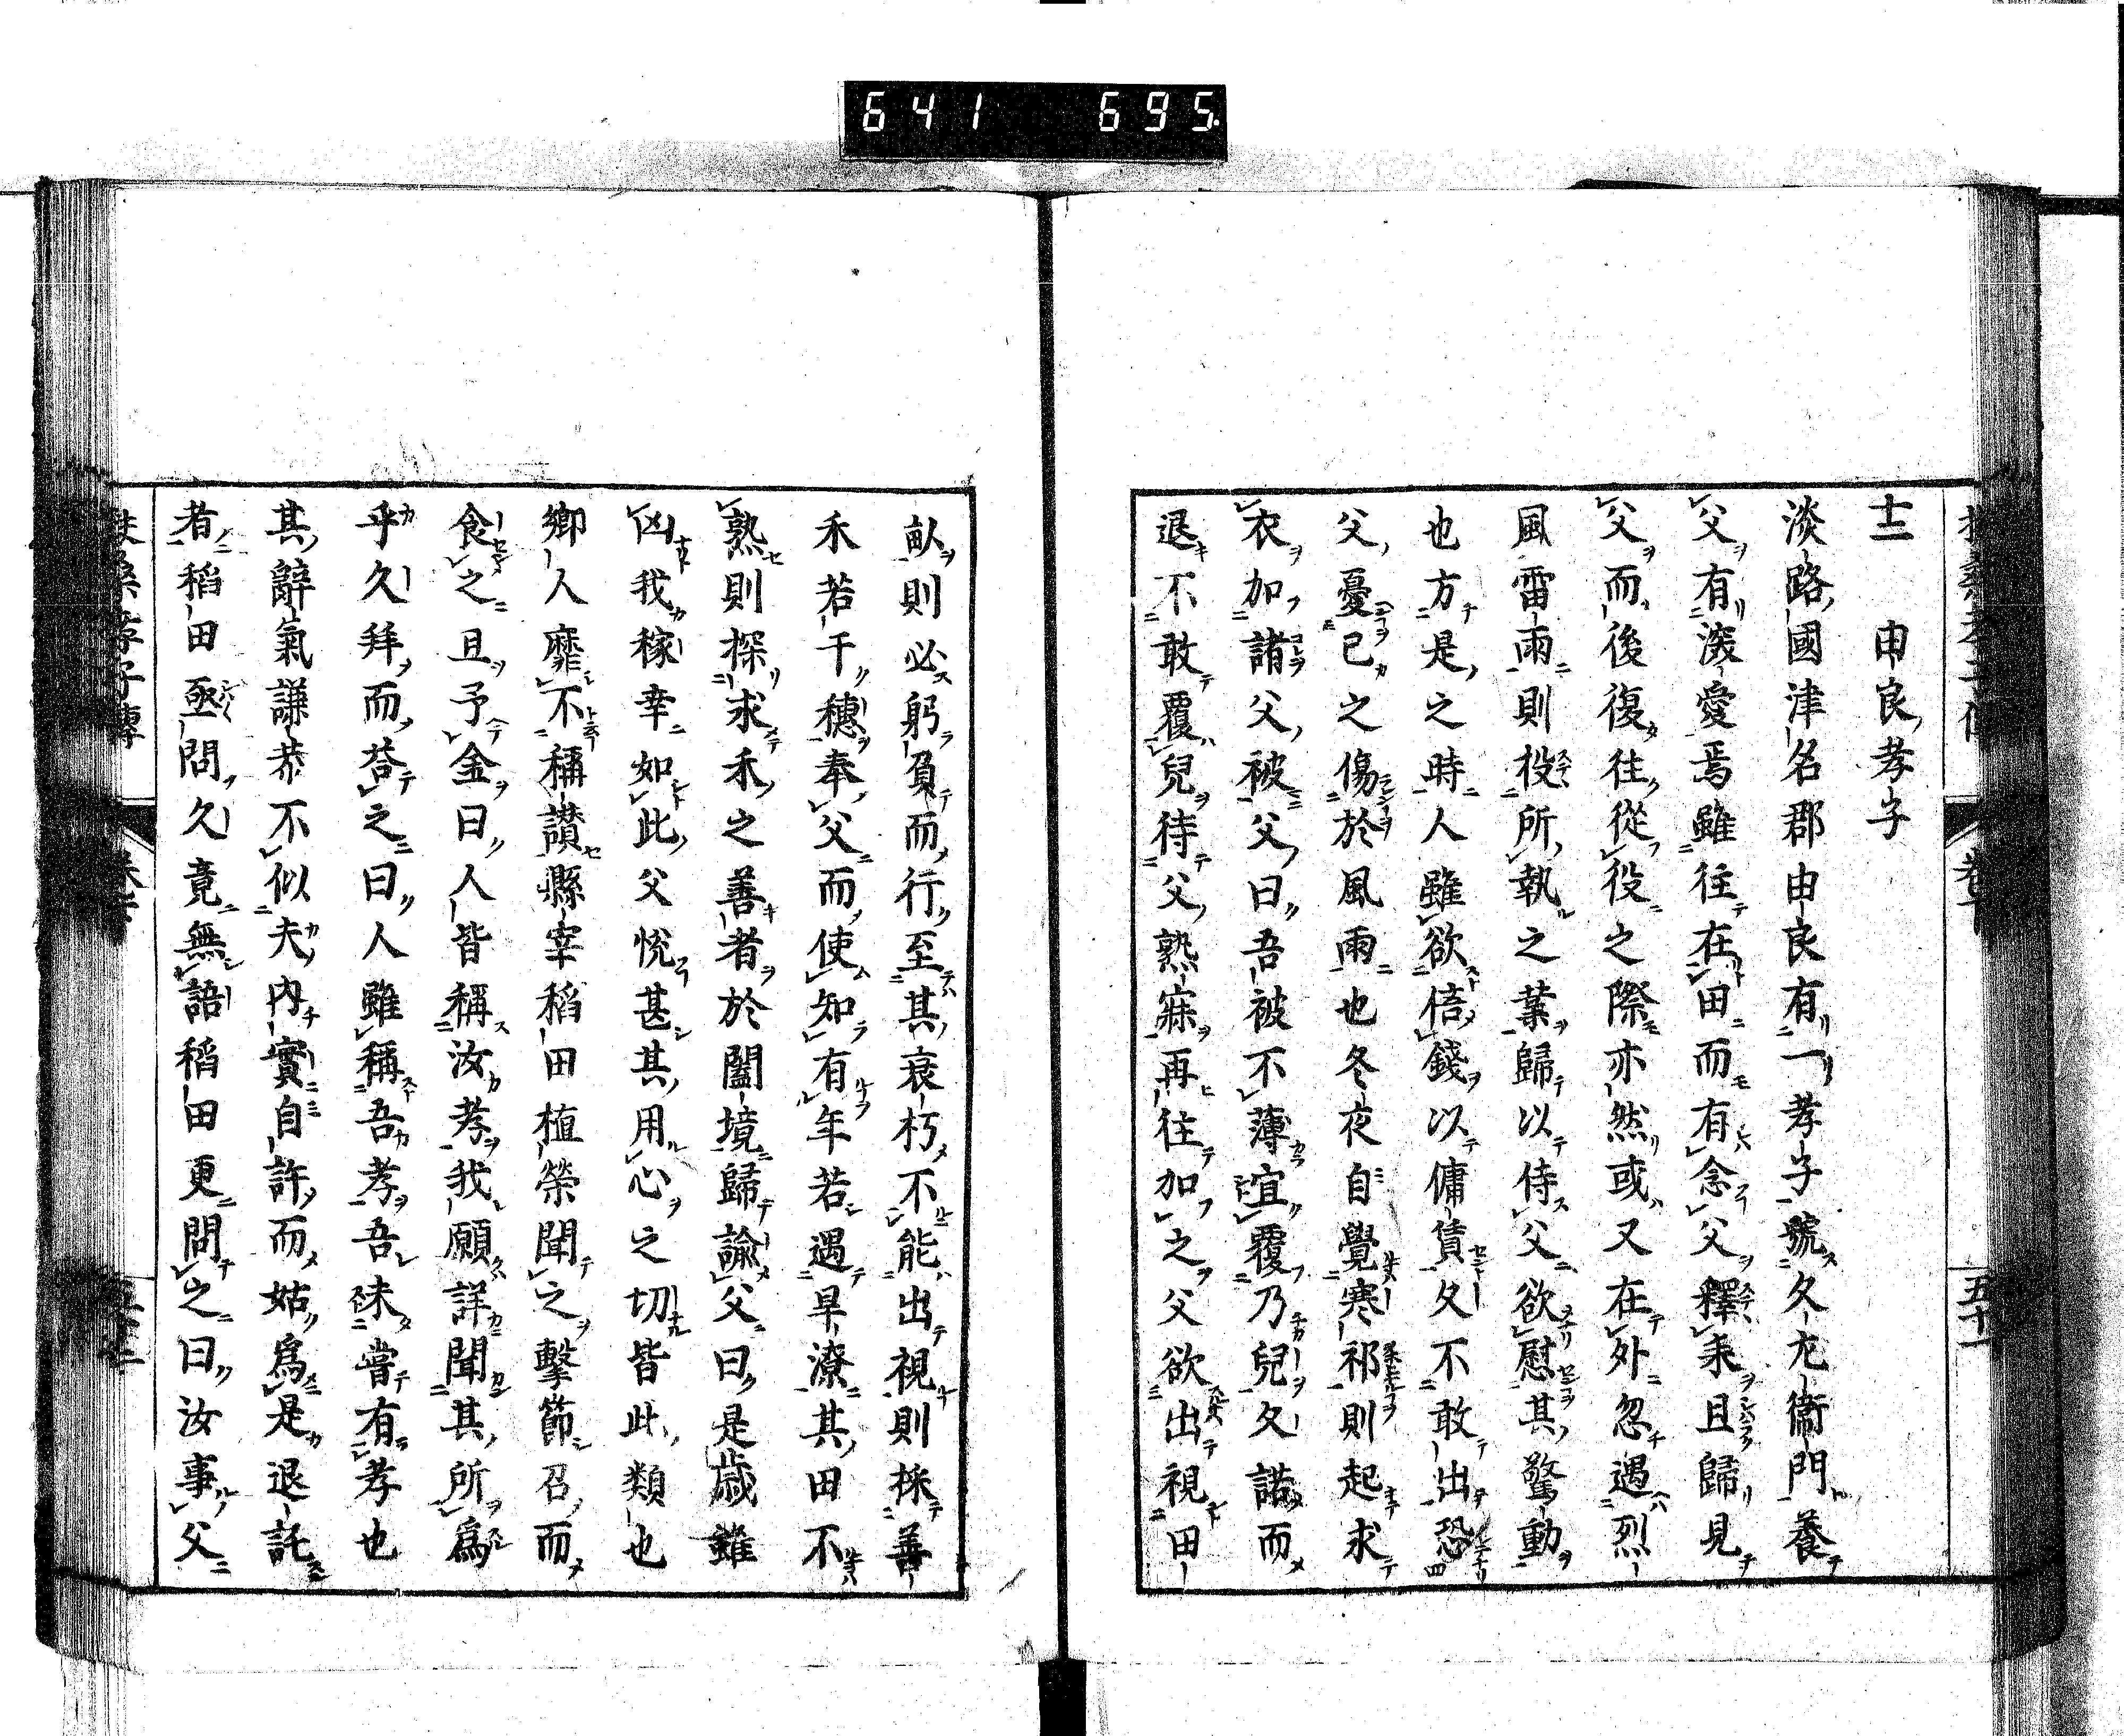 641 695.
十二 由良孝子
淡路國津名郡由良有一孝子號久左衞門養
父有深愛焉雖往在田而有念父釋耒且歸見
父而後復往從役之際亦然或又在外忽遇烈
風雷雨則投所執之業歸以侍父欲慰其驚動
也方是之時人雖欲倍錢以傭賃久不敢出恐
父憂已之傷於風雨也冬夜自覺寒祁則起求
衣加諸父被父曰吾被不薄宜覆乃兒久諾而
退不敢覆兒待父熟寐再往加之父欲出視田
畝則必躬負而行至其衰朽不能出視則採善
禾若干穗奉父而使知有年若遇旱潦其田不
熟則探求禾之善者於闔境歸諭父曰是歲雖
凶我稼幸如此父悅甚其用心之切皆此類也
鄉人靡不稱讚縣宰稻田植榮聞之擊節召而
食之且予金曰人皆稱汝孝我願詳聞其所爲
乎久拜而荅之曰人雖稱吾孝吾未嘗有孝也
其辭氣謙恭不似夫內實自許而姑爲是退託
者稻田亟問久竟無語稻田更問之曰汝事父
扶桑孝子傳 卷下